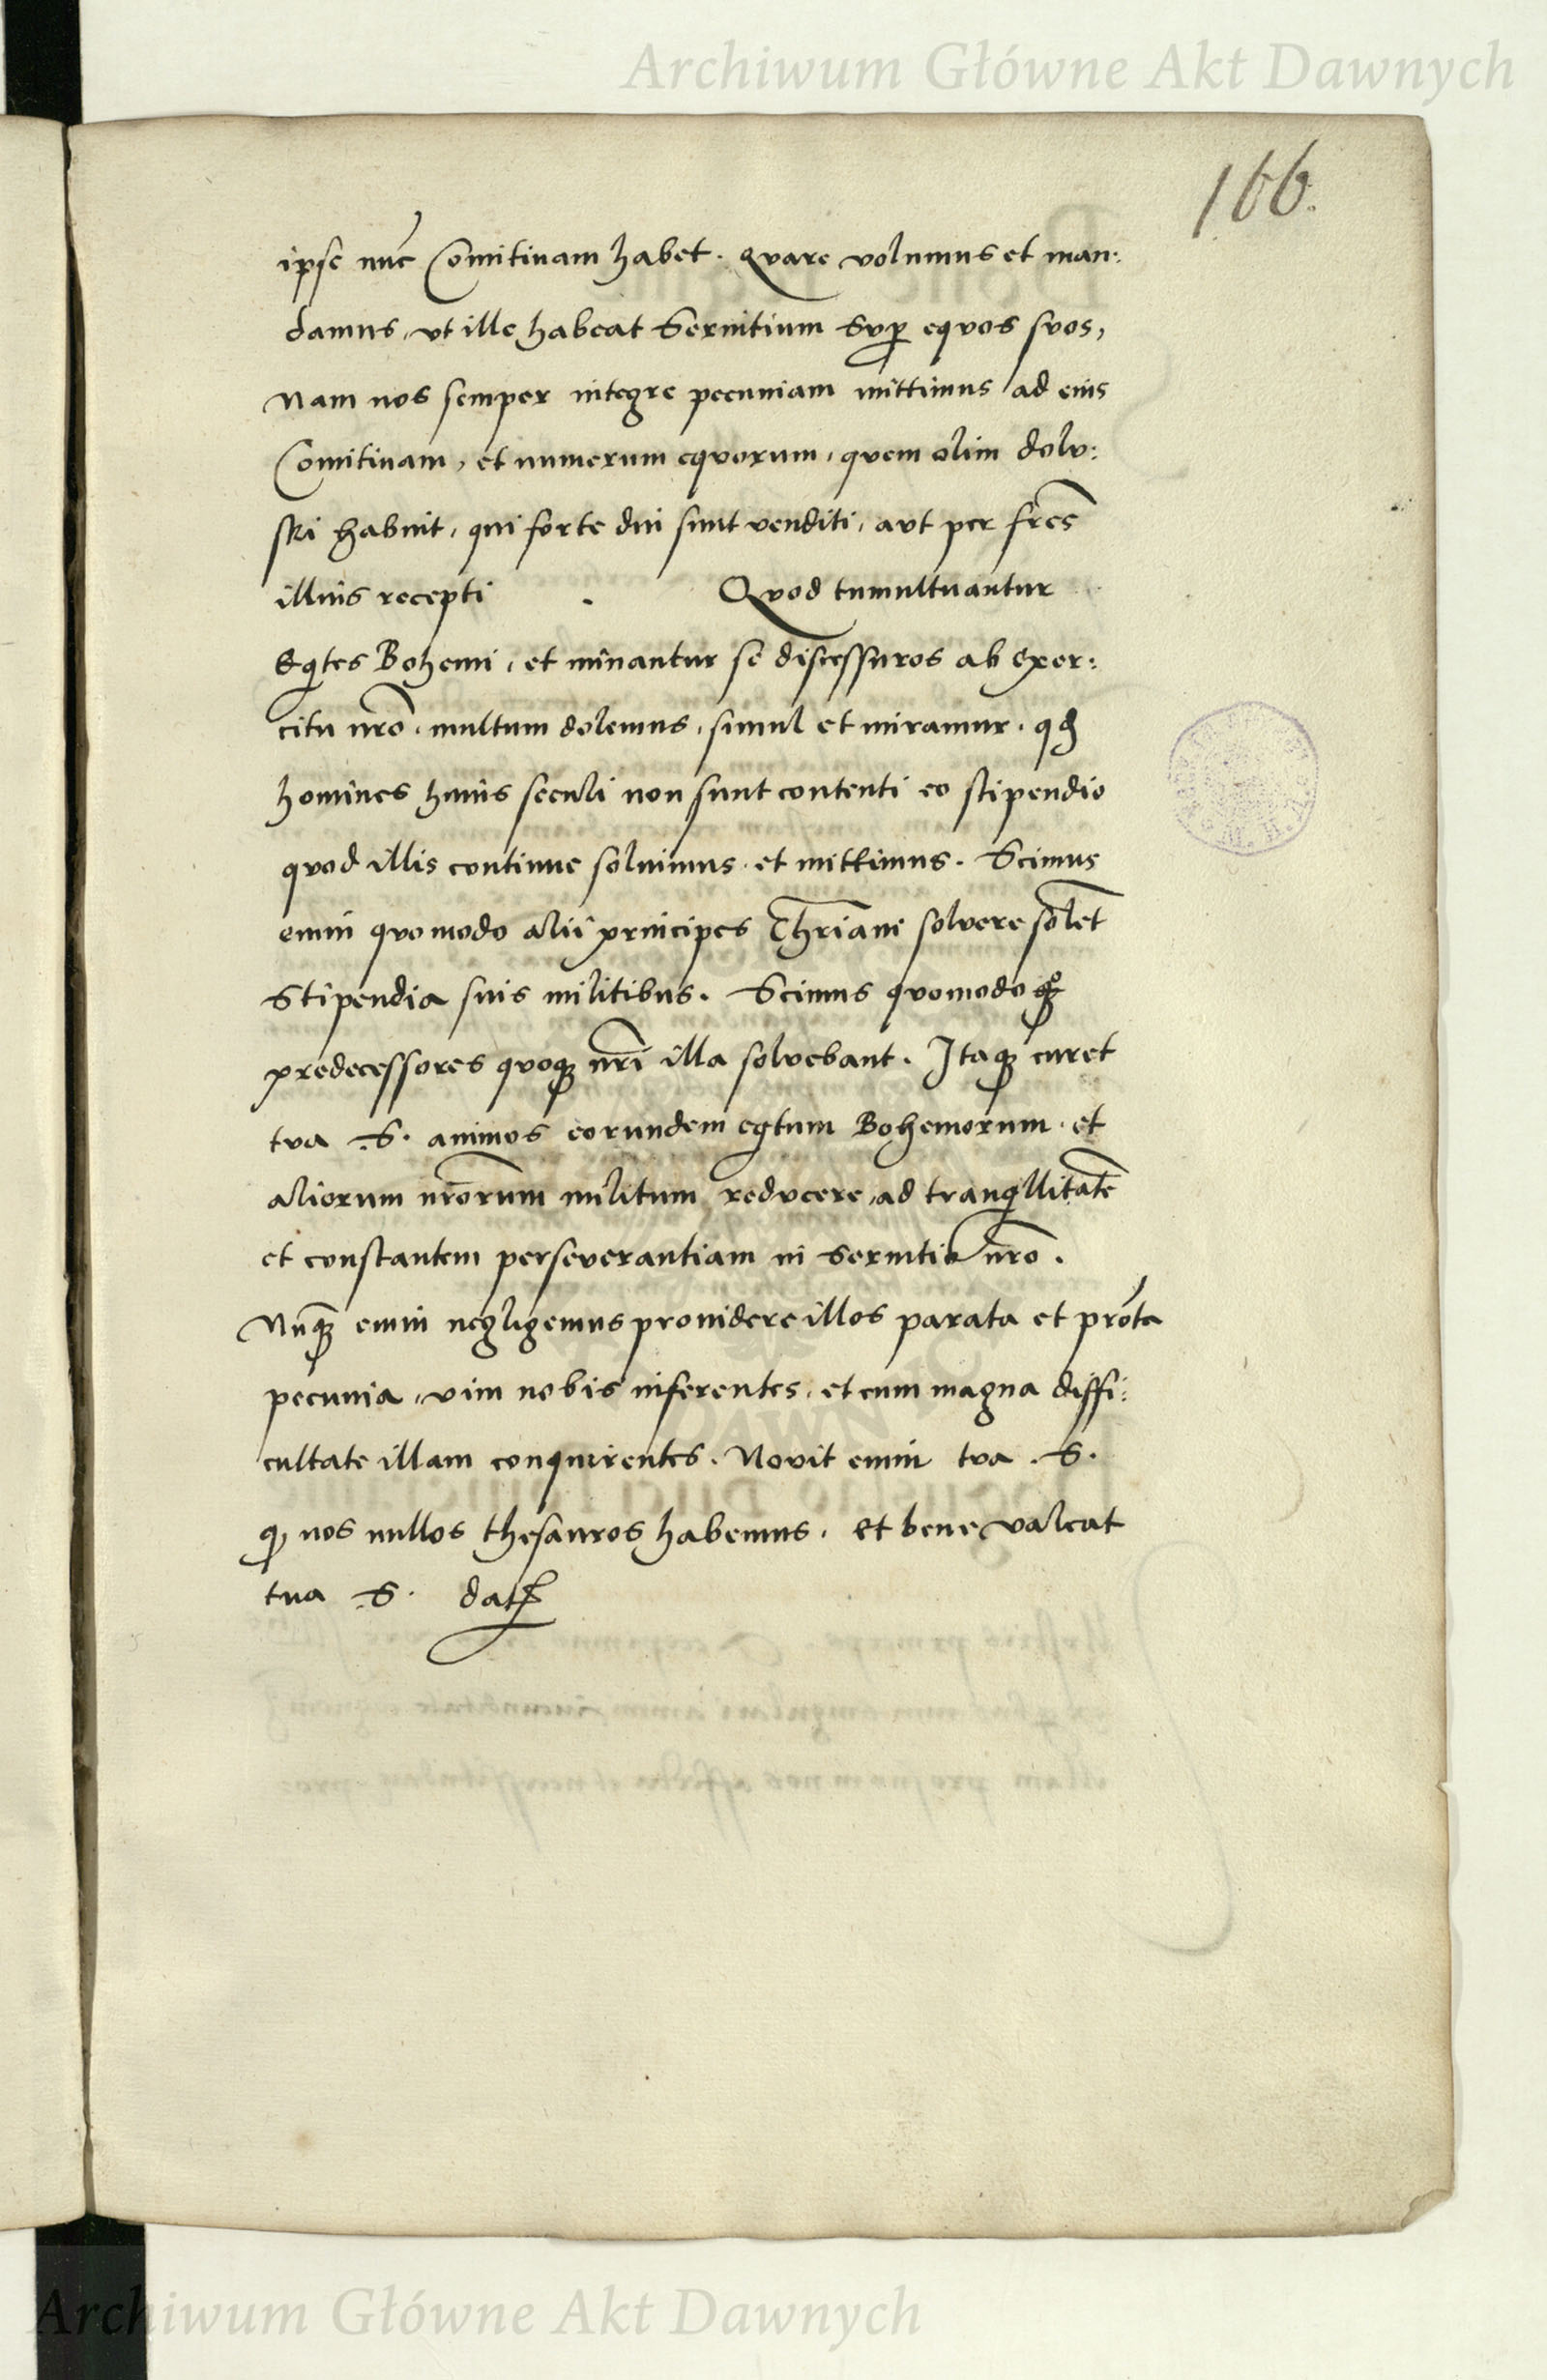 Archiwum Główne Akt Dawnych
166.
ipse nũc Comitiuam habet. Qvare volumus et man:
damus, vt ille habeat Seruitium Svp eqvos svos,
Nam nos semper integre pecuniam mittimus ad eius
Comitiuam, et numerum eqvorum, qvem olim dolv:
ski habuit, qui forte diu sunt venditi, avt per fr̃es
illius recepti . Qvod tumultuantur
Eqites Bohemi, et minantur se discessuros ab exer:
citu nr̃o. multum dolemus, simul et miramur. qđ
homines huius seculi non sunt contenti eo stipendio
qvod illis continue soluimus et mittimus. Scimus
enim qvomodo alii principes Chr̃iani solvere solẽt
Stipendia suis militibus. Scimus qvomodo
predecessores qvoqꝫ nr̃i illa solvebant. Itaqꝫ curet
tva .S. animos eorundem eqtum Bohemorum et
aliorum nr̃orum militum redvcere ad tranqllitatẽ
et constantem perseverantiam in Seruitio nr̃o.
Nũqꝫ enim negligemus prouidere illos parata et prõta
pecunia, vim nobis inferentes, et cum magna diffi:
cultate illam conquirentes. Novit enim tva .S.
qꝫ nos nullos thesauros habemus. Et bene valeat
tua .S. datꝭ
Archiwum Główne Akt Dawnych